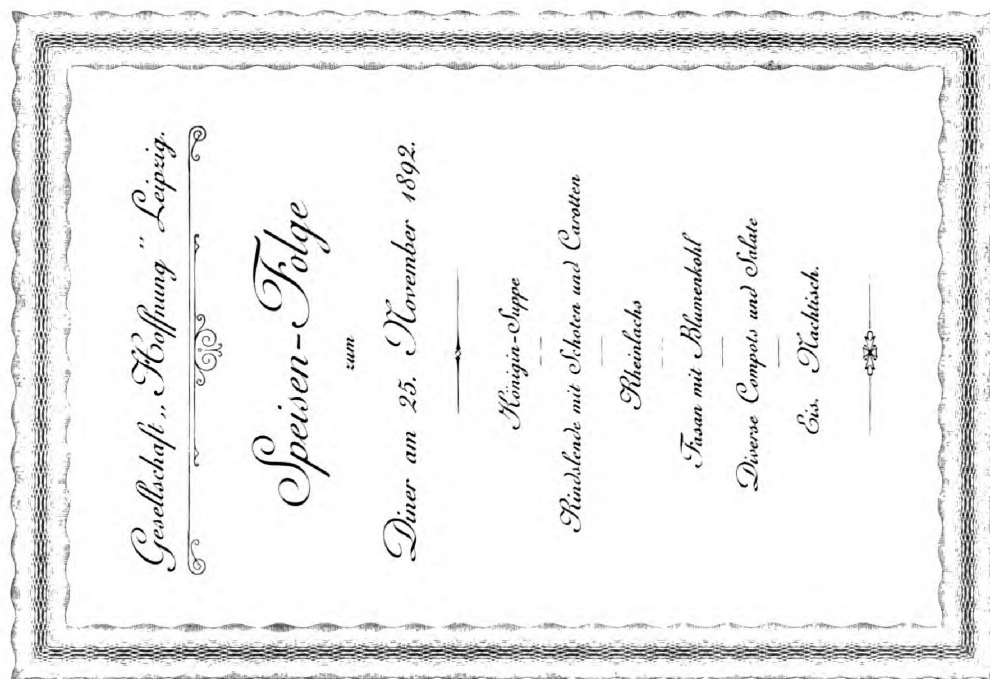 Gesellschaft „Hoffnung" Leipzig.
Speisen-Folge
zum
Diner am 25. November 1892.
Königin-Suppe
Rindslende mit Schoten und Carotten
Rheinlachs
Fasan mit Blumenkohl
Diverse Compots und Salate
Eis. Nachtisch.